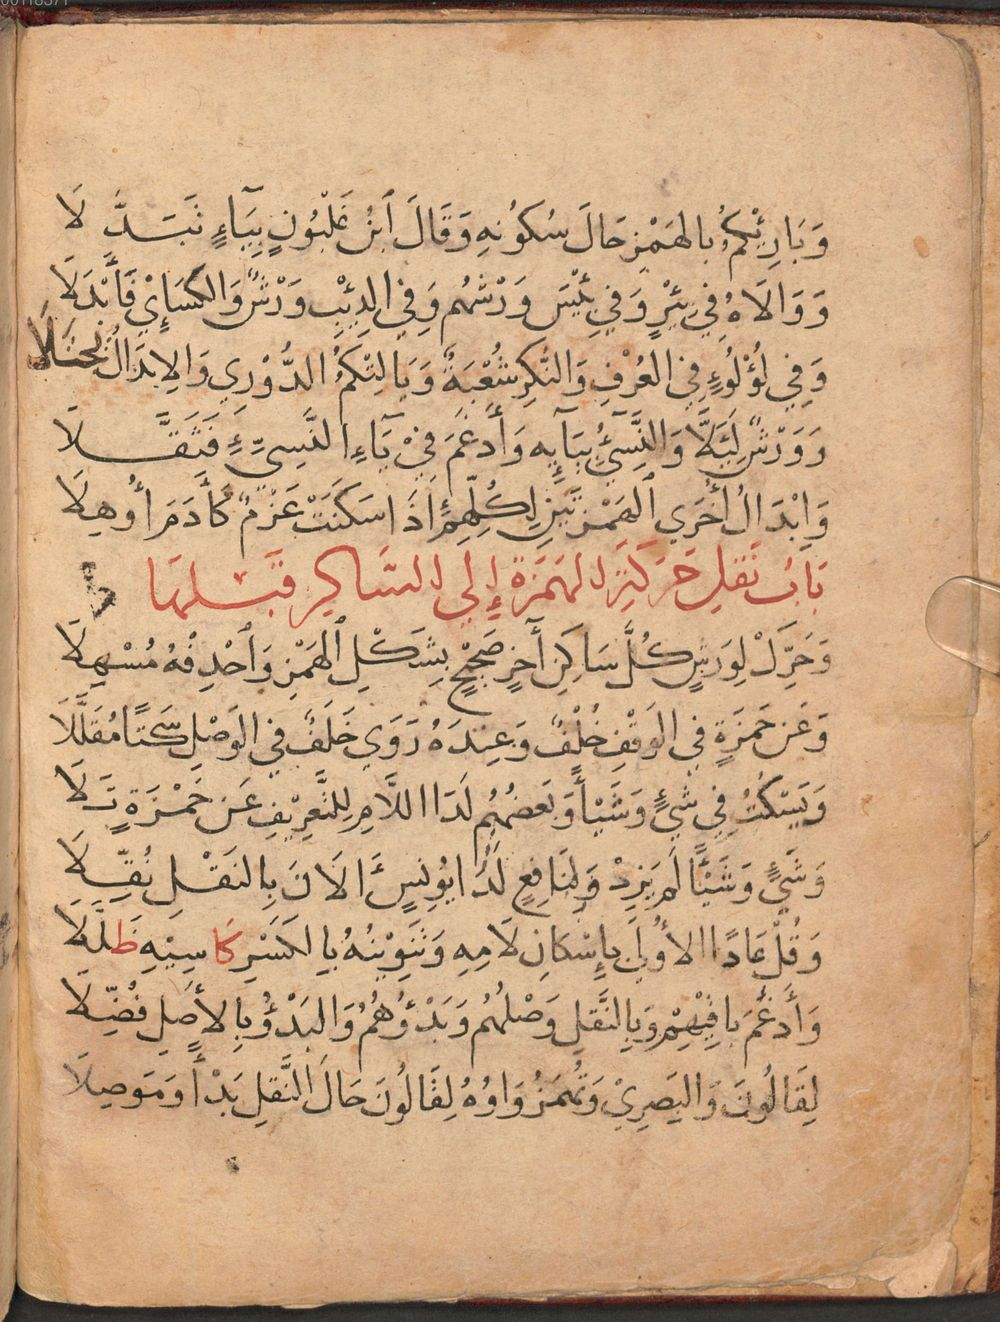 وَبَارِئْكُمُ بِالهَمْزِ حَالَ سُكُونِهِ وَقَالَ ابْنُ غَلْبُونٍ بِيَاءٍ تَبَدَّ لَا
وَوَالَاهُ فِي بِئْرٍ وَفِي بِئْسَ وَرْشُهُم وَفِي الذِئْبِ وَرْشٌ وَالكِسَائِيْ فَأَبْدَلَا
وَفِي لُؤْلُوءٍ فِي العُرْفِ وَالنُّكْرِ شُعْبَةٌ وَيَالِتْكُمُ الدُّوْرِي وَالاِبْدَالُ يُجْتَلَا
وَوَرْشٌ لِئَلَّا وَالنَّسِيْءُ بِيَآئِهِ وَأَدْغَمَ فِيْ يَآءِ النَّسِيْءِ فَثَقَّلَا
وَاِبْدَالُ أُخْرَي الهَمْزَتَيْنِ لِكُلِّهِمْ إِذَا سَكَنَتْ عَزْمٌ كَأَدَمَ أُوهِلَا
بَابُ نَقْلِ حَرَكَةِ الهَمْزَةِ إِلَي السَّاكِنِ قَبْلَهَا
وَحَرِّكْ لِوَرْشٍ كُلَّ سَاكِنِ آخِرٍ صَحِيْحٍ بِشَكْلِ الهَمْزِ وَاحْذِفْهُ مُسْهِلَا
وَعَن حَمْزَةٍ فِي الوَقْفِ خُلْفٌ وَعِندَهُ رَوَي خَلَفٌ فِي الوَصْلِ سَكْتًا مُقَلَّلَا
وَيَسْكُتُ فِي شَيْءٍ وَشَيْأً وَبَعضُهُم لَدَا اللَّامِ لِلتَّعْرِيْفِ عَن حَمْزَةٍ تَلَا
وَشَيْءٍ وَشَيْئًا لَم يَزِدْ وَلِنَافِعٍ لَدَا يُونِسٍ ءَالَانَ بِالنَقْلِ نُقِّلَا
وَقُلْ عَادًا الاُولَي بِإِسْكَانِ لَامِهِ وَتَنوِيْنُهُ بِالكَسْرِ كَاسِيْهِ ظَلَّلَا
وَأَدْغَمَ بَاقِيْهِمْ وَبِالنَّقلِ وَصْلُهُم وَبَدْؤُهُمُ وَالبَدْؤُ بِالأَصْلِ فُضِّلَا
لِقَالُونَ وَالبَصرِيْ وَتُهمَزُ وَاوُهُ لِقَالُونَ حَالَ النَّقلِ بَدْأً وَمَوصِلَا